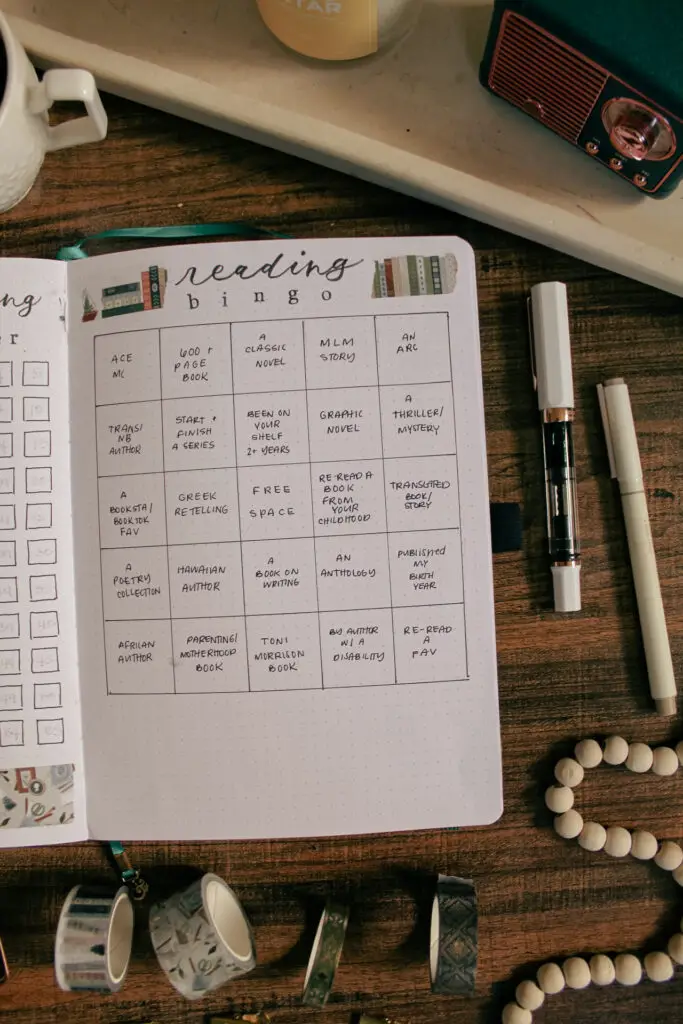 STAR
ng
r
reading
bingo
ACE
MC
600 +
PAGE
BOOK
A
CLASSIC
NOVEL
MLM
STORY
AN
ARC
TRANS/
NB
AUTHOR
START +
FINISH
A SERIES
BEEN ON
YOUR
SHELF
2+ YEARS
GRAPHIC
NOVEL
A
THRILLER/
MYSTERY
A
BOOKSTA/
BOOKTOK
FAV
GREEK
RETELLING
FREE
SPACE
RE-READ A
BOOK
FROM
YOUR
CHILDHOOD
TRANSLATED
BOOK/
STORY
A
POETRY
COLLECTION
HAWAIIAN
AUTHOR
A
BOOK ON
WRITING
AN
ANTHOLOGY
PUBLISHED
MY
BIRTH
YEAR
AFRICAN
AUTHOR
PARENTING/
MOTHERHOOD
BOOK
TONI
MORRISON
BOOK
BY AUTHOR
W/ A
DISABILITY
RE-READ
A
FAV